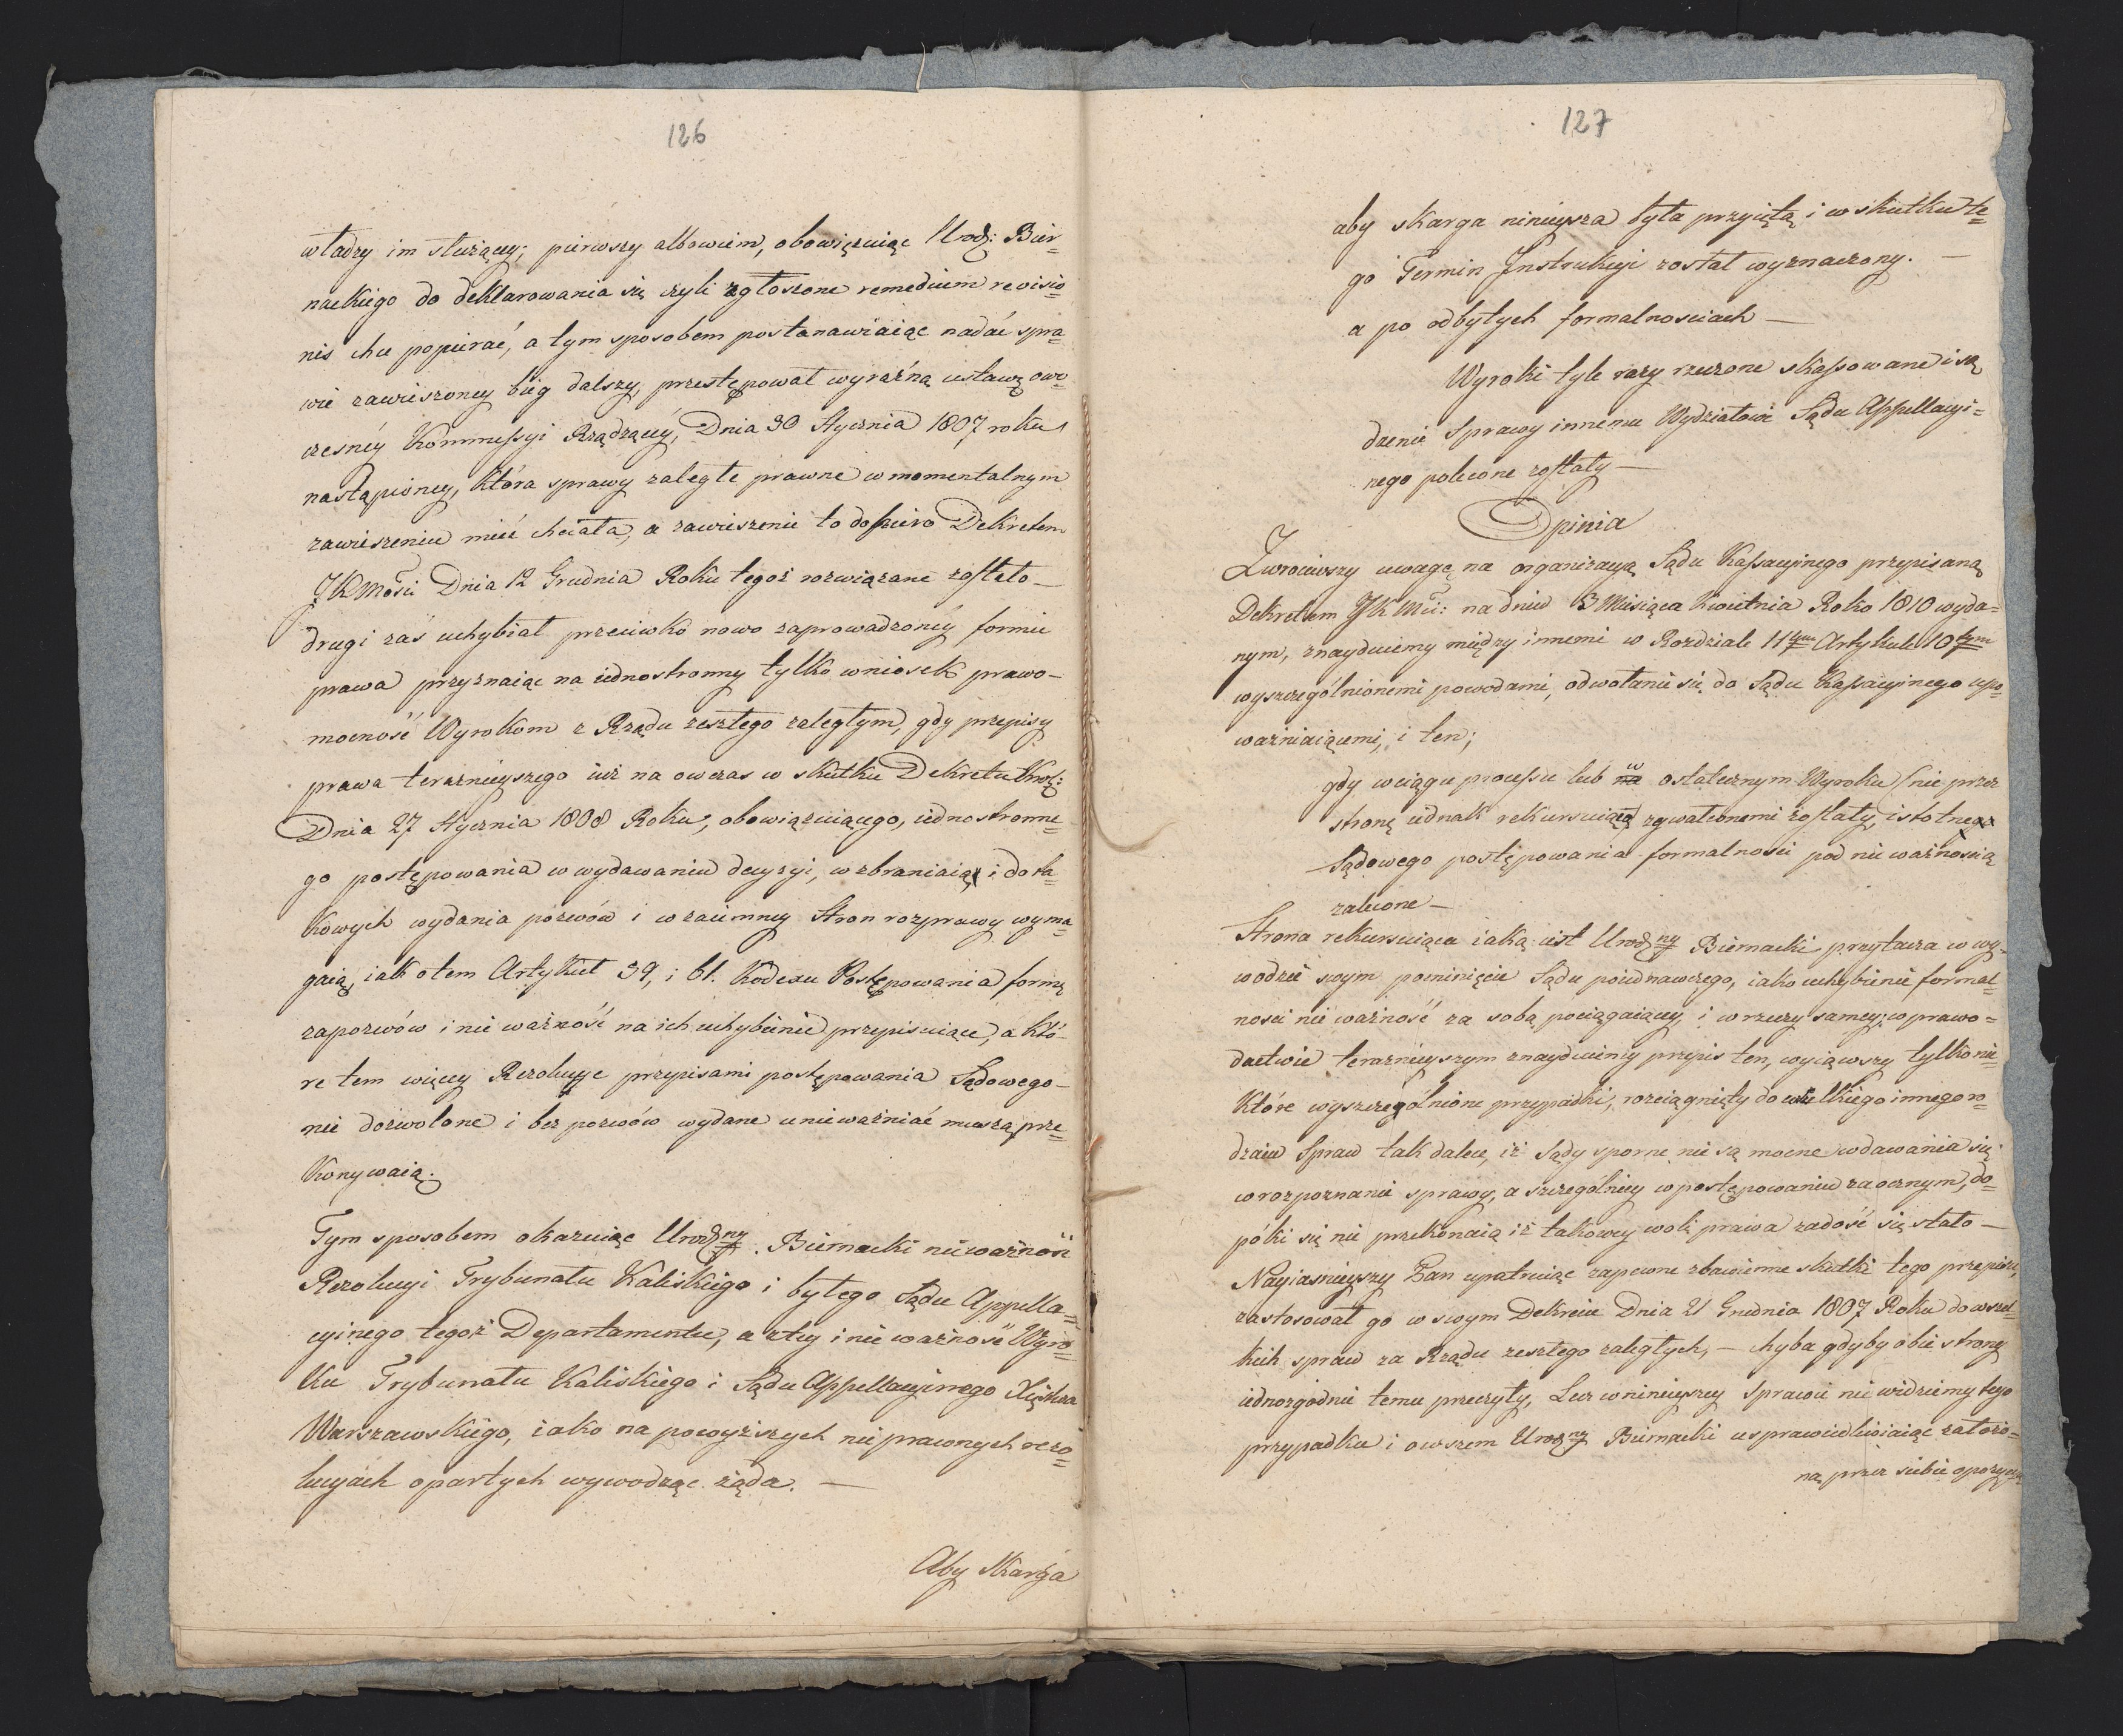 126
władzy im służącey; pierwszy albowiem, obowięzuiąc Urodz: Bier=
nackiego do deklarowania się czyli zgłoszone remedium revisio=
nis chce popierać, a tym sposobem postanawiaiąc nadać spra=
wie zawieszoney bieg dalszy, przestępował wyraźną ustawę ow=
czesnéy Kommissyi Rządzącéy, Dnia 30 Stycznia 1807 roku
nastąpioney, która sprawy zaległe prawne w momentalnym
zawieszeniu mieć chciała, a zawieszenie to dopiero Dekretem
JKMości Dnia 12 Grudnia Roku tegoż rozwiązane zostało —
drugi zaś uchybiał przeciwko nowo zaprowadzonéy formie
prawa przyznaiąc na iednostronny tylko wniosek prawo-
mocność Wyrokom z Rządu zeszłego zaległym, gdy przepisy
prawa teraznieyszego iuż na owczas w skutku Dekretu Król:
Dnia 27 Stycznia 1808 Roku, obowiązuiącego, iednostronne=
go postępowania w wydawaniu decyzyi, wzbraniaią i do ta=
kowych wydania pozwów i wzaiemney Stron rozprawy wyma=
gaią, iak o tem Artykuł 39, i 61. Kodexu Postępowania formę
zapozwów i nie ważność na ich uchybienie przepisuiące, a któ-
re tem więcey Rezolucye przepisami postępowania Sądowego —
nie dozwolone i bez pozwów wydane unieważniać muszą prze=
konywaią.
Tym sposobem okazuiąc Urodzny. Biernacki nieważność
Rezolucyi Trybunału Kaliskiego i byłego Sądu Appella=
cyinego tegoż Departamentu, a ztey i nie ważność Wyro=
ku Trybunału Kaliskiego i Sądu Appellacyinego Xięstwa
Warszawskiego, iako na powyższych nie prawnych rezo=
lucyach opartych wywodząc żąda. —
Aby skarga
127
aby skarga ninieysza była przyięta i w skutku te=
go Termin Instrukcyi został wyznaczony. —
a po odbytych formalnościach —
Wyroki tyle razy rzeczone skassowane i są
dzenie Sprawy innemu Wydziałowi Sądu Appellacyi=
nego polecone zostały —
Opinia
Zwróciwszy uwagę na organizacyą Sądu Kassacyinego przepisaną
Dekretem JKMci: na dniu 3 Miesiąca Kwietnia Roku 1810 wyda=
nym, znayduiemy między innemi w Rozdziale 11tym Artykule 10tym
wyszczególnionemi powodami, odwołanie się do Sądu Kassacyinego upo=
ważniaiącemi, i ten;
gdy w ciągu processu lub w ostatecznym Wyroku (nie przez
stronę iednak rekursuiącą) zgwałconemi zostały, istotne
Sądowego postępowania formalności pod nieważnością
zalecone —
Strona rekursuiąca iaką iest Urodzny Biernacki przytacza w wy-
wodzie swym pominięcie Sądu poiednawczego, iako uchybienie formal=
ności nie ważność za sobą pociągaiącey, i w rzeczy samey; w prawo=
dactwie teraznieyszym znayduiemy przepis ten, wyiąwszy tylko nie=
które wyszczególnione przypadki, rozciągnięty do wszelkiego innego ro=
dzaiu Spraw tak dalece, iż Sądy sporne nie są mocne wdawania się
w rozpoznanie sprawy, a szczególniey w postępowaniu zaocznym, do=
póki się nie przekonaią iż takowey woli prawa zadość się stało —
Nayiaśnieyszy Pan upatruiąc zapewne zbawienne skutki tego przepisu,
zastosował go w swym Dekrecie Dnia 21 Grudnia 1807 Roku do wszel=
kich spraw za Rządu zeszłego zaległych, — chyba gdyby obie strony
iednozgodnie temu przeczyły, Lecz w ninieyszey Sprawie nie widziemy tego
przypadku i owszem Urodzny Biernacki usprawiedliwiaiąc założo=
ną przez siebie opozycyą